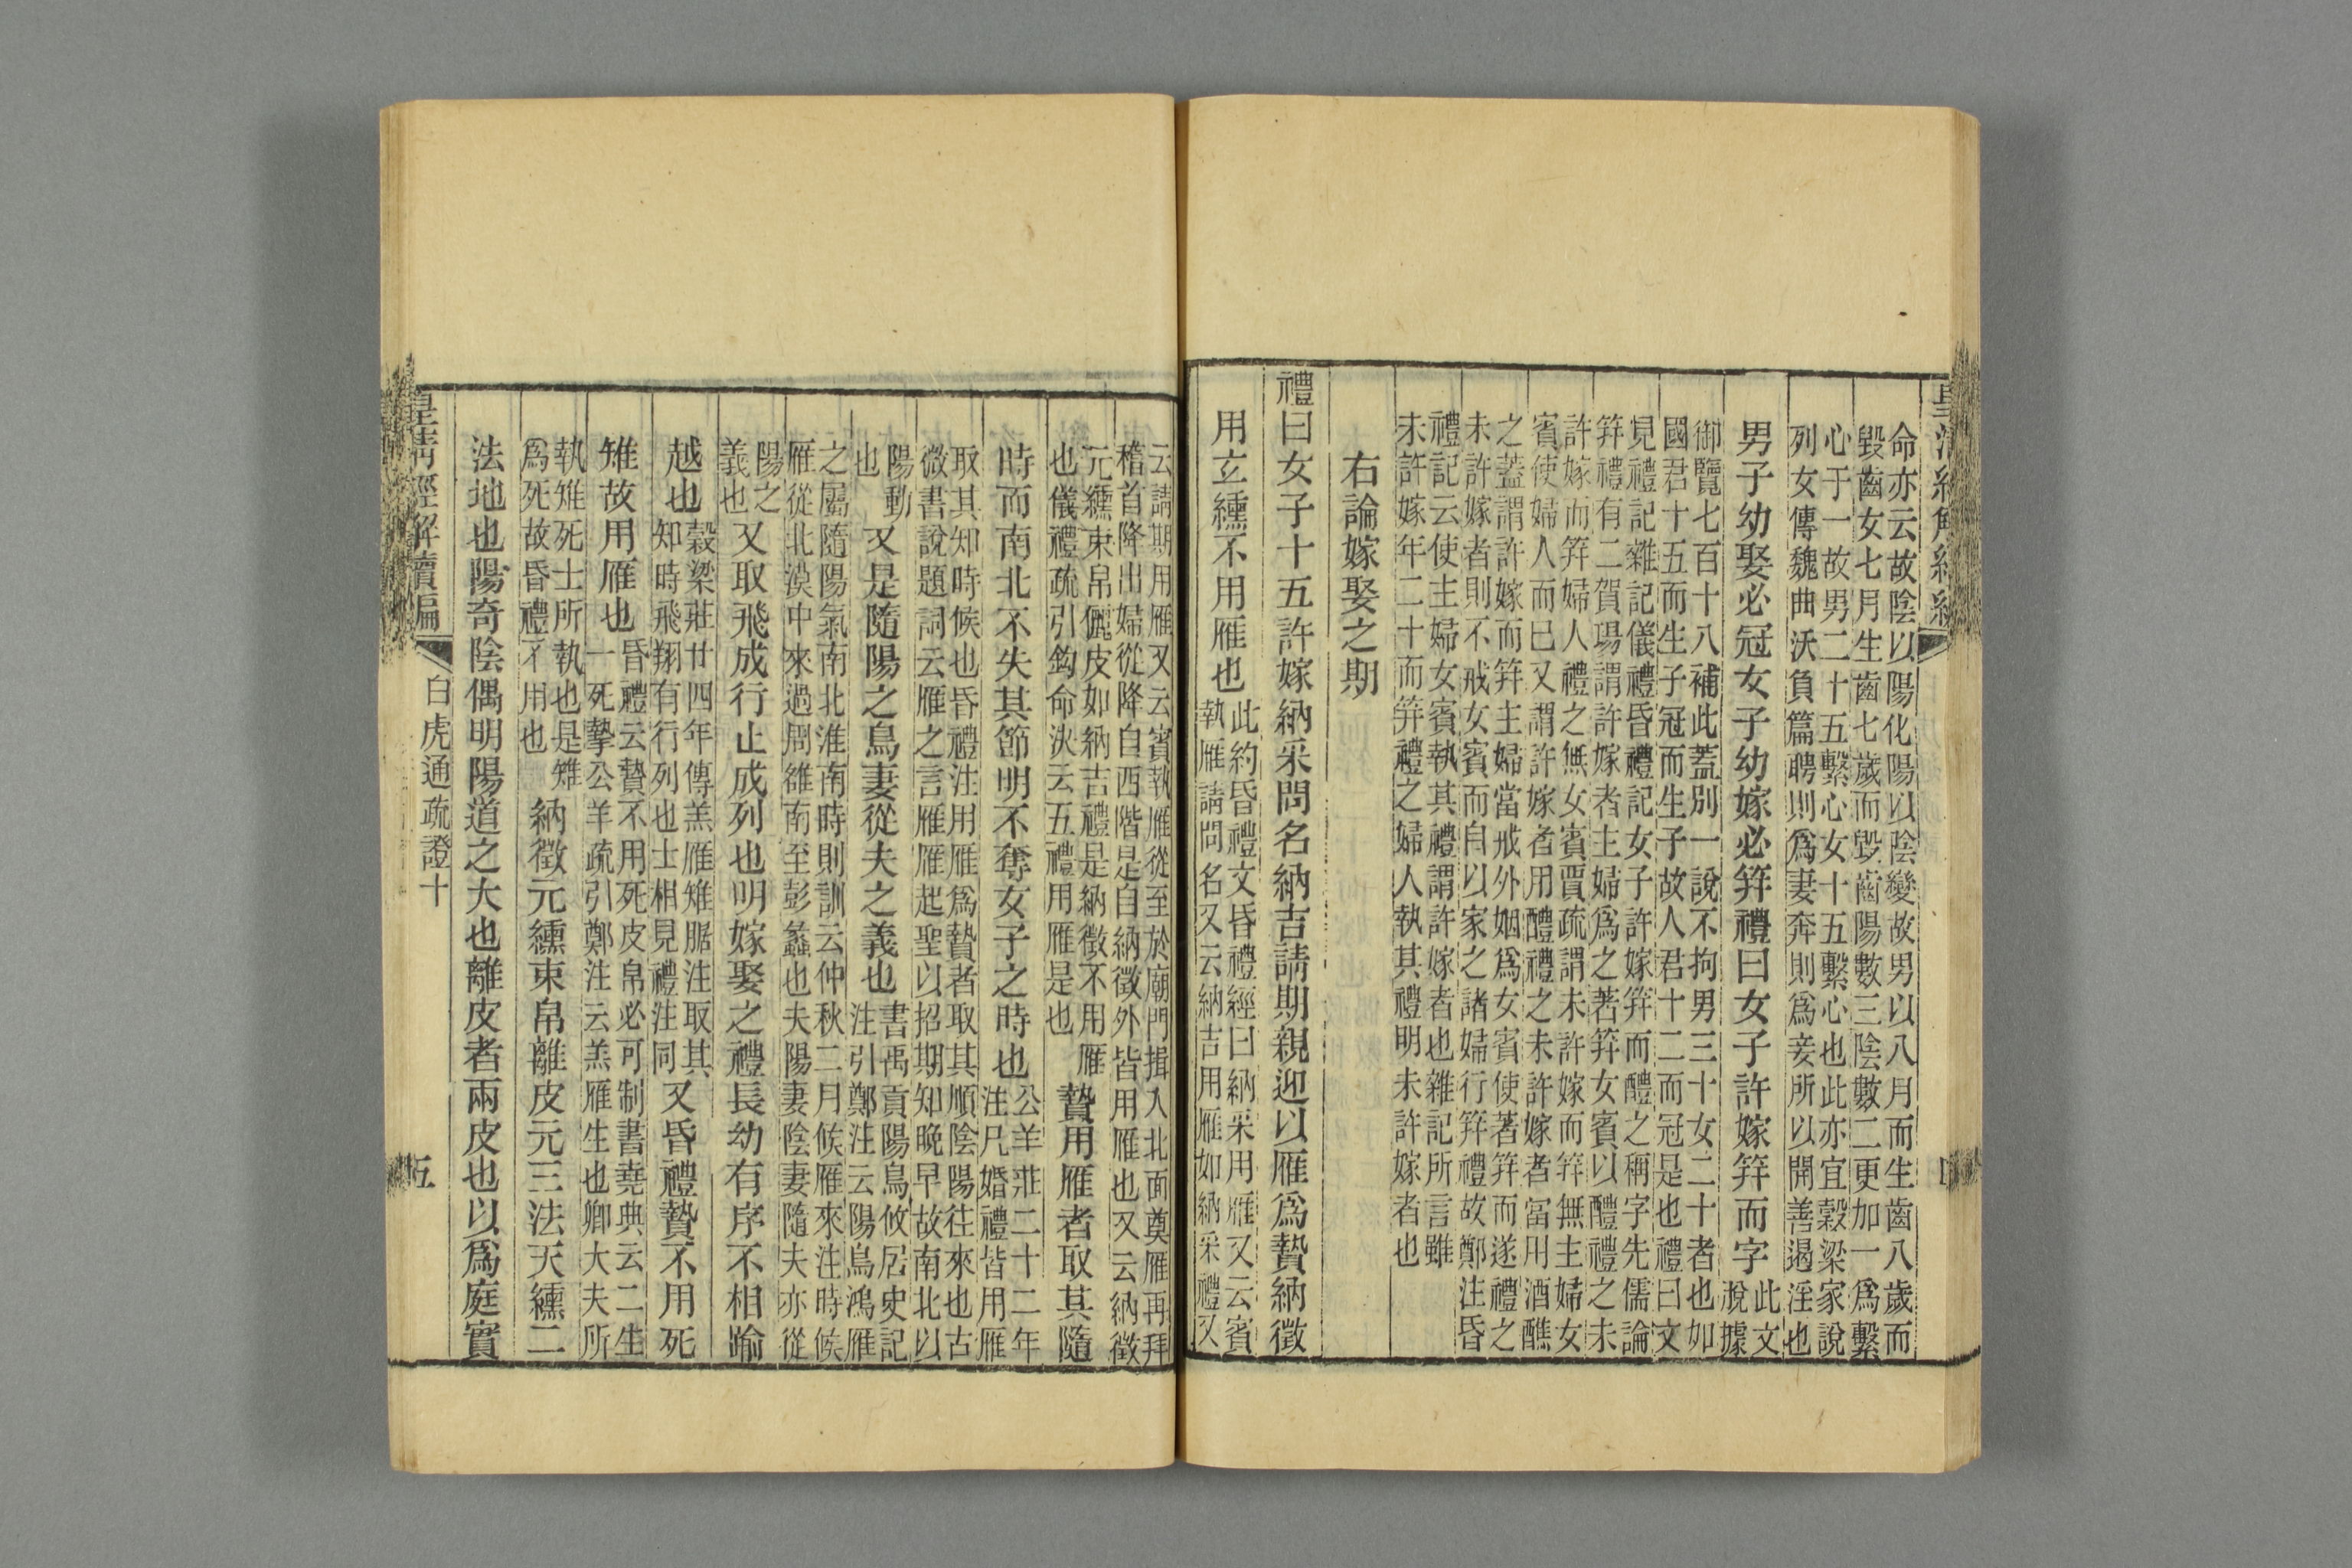 命亦云故陰以陽化陽以陰變故男以八月而生齒八歲而
毀齒女七月生齒七歲而毀齒陽數三陰數二更加一爲繫
心于一故男二十五繫心女十五繫心也此亦宜穀梁家說
列女傳魏曲沃負篇聘則爲妻奔則爲妾所以開善遏淫也
男子幼娶必冠女子幼嫁必笄禮曰女子許嫁笄而字
此文
脫據
御覽七百十八補此蓋別一說不拘男三十女二十者也如
國君十五而生子冠而生子故人君十二而冠是也禮曰文
見禮記雜記儀禮昏禮記女子許嫁笄而醴之稱字先儒論
笄禮有二賀瑒謂許嫁者主婦爲之著笄女賓以醴禮之未
許嫁而笄婦人禮之無女賓賈疏謂未許嫁而笄無主婦女
賓使婦人而已又謂許嫁者用醴禮之未許嫁者當用酒醮
之蓋謂許嫁而笄主婦當戒外姻爲女賓使著笄而遂禮之
未許嫁者則不戒女賓而自以家之諸婦行笄禮故鄭注昏
禮記云使主婦女賓執其禮謂許嫁者也雜記所言雖
未許嫁年二十而笄禮之婦人執其禮明未許嫁者也
右論嫁娶之期
禮曰女子十五許嫁納采問名納吉請期親迎以雁爲贄納徵
用玄纁不用雁也
此約昏禮文昏禮經曰納采用雁又云賓
執雁請問名又云納吉用雁如納采禮又
云請期用雁又云賓執雁從至於廟門揖入北面奠雁再拜
稽首降出婦從降自西階是自納徵外皆用雁也又云納徵
元纁束帛儷皮如納吉禮是納徵不用雁
也儀禮疏引鈎命決云五禮用雁是也
贄用雁者取其隨
時而南北不失其節明不奪女子之時也
公羊莊二十二年
注凡婚禮皆用雁
取其知時候也昏禮注用雁爲贄者取其順陰陽往來也古
微書說題詞云雁之言雁雁起聖以招期知晚早故南北以
陽動
也
又是隨陽之鳥妻從夫之義也
書禹貢陽鳥攸居史記
注引鄭注云陽鳥鴻雁
之屬隨陽氣南北淮南時則訓云仲秋二月候雁來注時候
雁從北漠中來過周雒南至彭蠡也夫陽妻陰妻隨夫亦從
陽之
義也
又取飛成行止成列也明嫁娶之禮長幼有序不相踰
越也
穀梁莊廿四年傳羔雁雉腒注取其
知時飛翔有行列也士相見禮注同
又昏禮贄不用死
雉故用雁也
昏禮云贄不用死皮帛必可制書堯典云二生
一死摯公羊疏引鄭注云羔雁生也卿大夫所
執雉死士所執也是雉
爲死故昏禮不用也
納徵元纁束帛離皮元三法天纁二
法地也陽奇陰偶明陽道之大也離皮者兩皮也以爲庭實
皇淸經解續編
白虎通疏證十
五